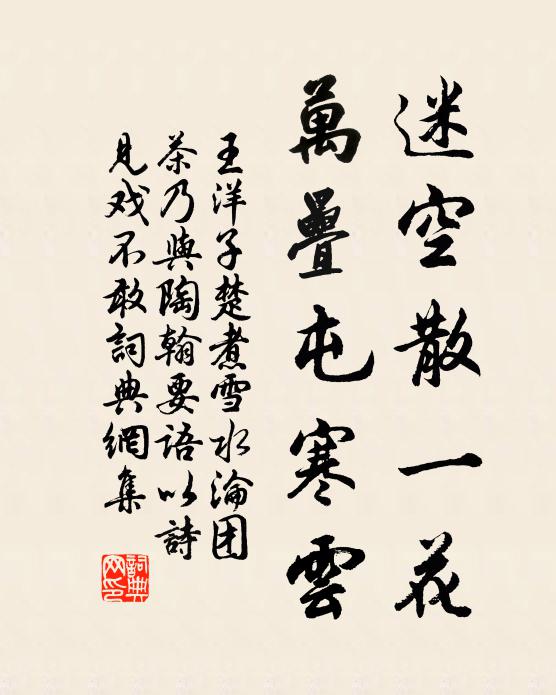 迷空散一花
萬疊屯寒雲
王洋子楚煮雪水淪团
茶乃與陶翰要語以詩
見戏不敢詞典網集
詞典
网印